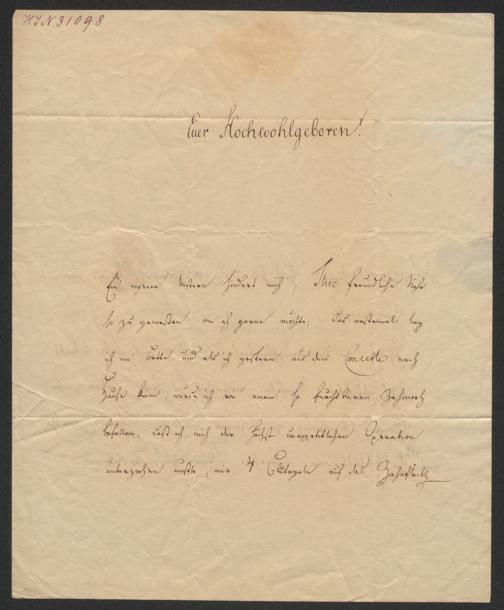 HIN 31098
Euer Hochwohlgeboren!
Ein eigener Unstern hindert mich, Ihre freundliche Nähe
so zu genießen, wie ich gerne möchte; das erstemal lag
ich im Bette und als ich gestern aus dem Concerte nach
Hause kam, wurde ich von einem so furchtbaren Zahnweh
befallen, daß ich mich der höchst unappetitlichen Operation
unterziehen mußte, mir 4 Blutegeln auf das Zahnfleisch